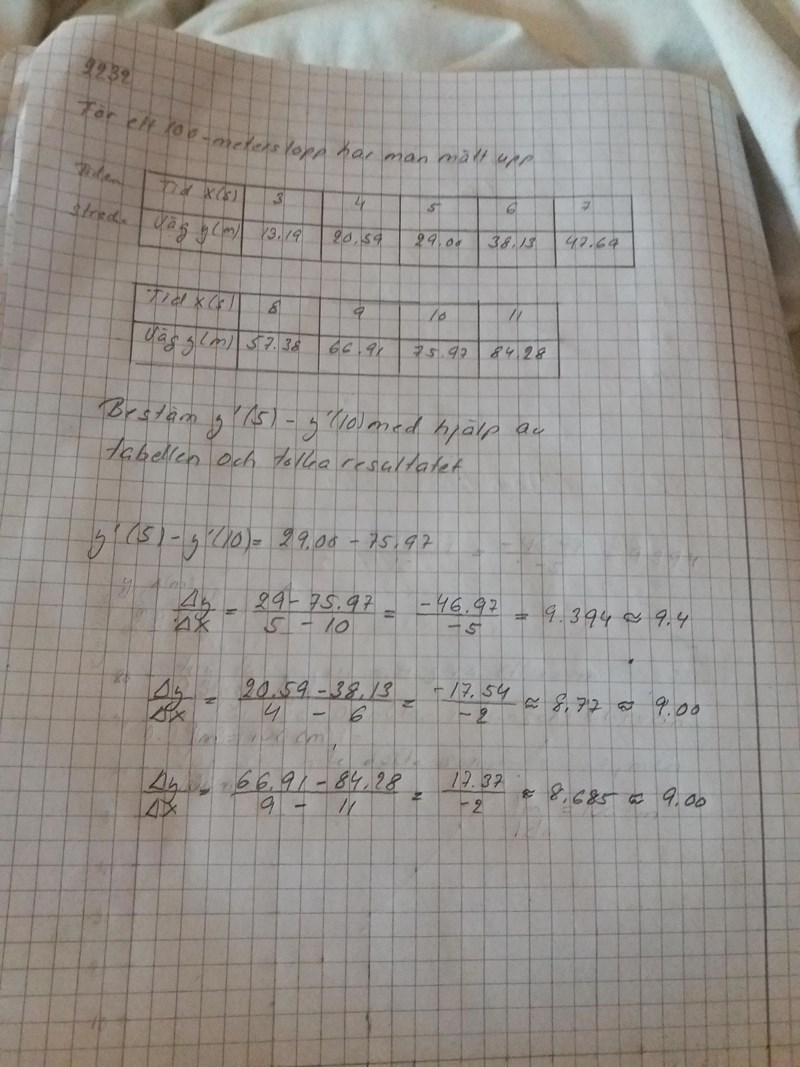 2232
För ett 100-meterslopp har man mätt upp
Tiden
Tid x(s) 3 4 5 6 7
Väg y(m) 13.19 20.59 29.00 38.13 47.69
Tid x(s) 8 9 10 11
Väg y(m) 57.38 66.91 75.97 84.28
Bestäm y'(5) - y'(10) med hjälp av
tabellen och tolka resultatet
y'(5) - y'(10) = 29.00 - 75.97
Δy/Δx = 29 - 75.97 / 5 - 10 = -46.97 / -5 = 9.394 ≈ 9.4
Δy/Δx = 20.59 - 38.13 / 4 - 6 = -17.54 / -2 ≈ 8.77 ≈ 9.00
Δy/Δx = 66.91 - 84.28 / 9 - 11 = 17.37 / -2 ≈ 8.685 ≈ 9.00